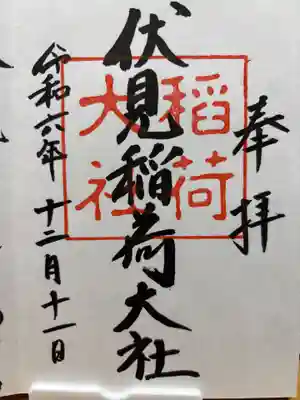 奉拝
伏見稲荷大社
稲荷
大社
令和六年 十二月十一日